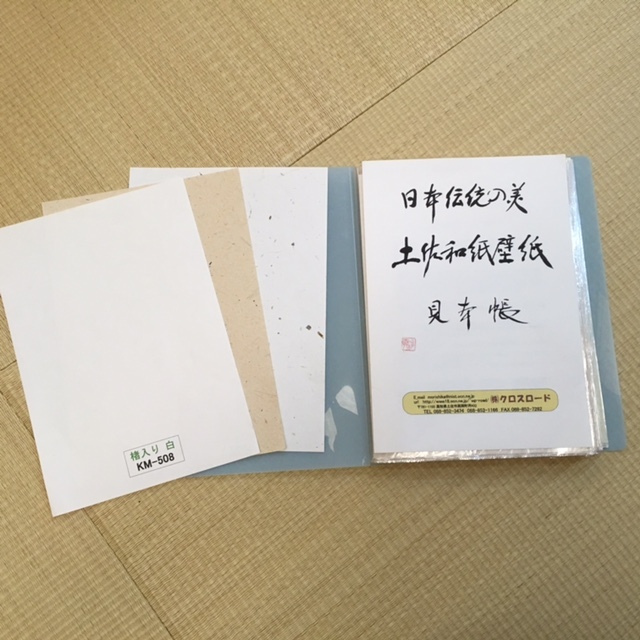 日本伝統の美
土佐和紙壁紙
見本帳
㈱クロスロード
TEL 088-852-0474 088-852-1166 FAX 088-852-7262
楮入り 白
KM-508